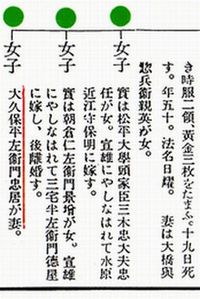 き時服二領、黄金三枚をたまふ。十九日死
す。年五十。法名日耀。　妻は大橋與
惣兵衛親英が女。
女子
實は松平大學頭家臣三木忠大夫忠
任が女。宣雄にやしなはれて水原
近江守保明に嫁す。
女子
實は朝倉仁左衛門景增が女。宣雄
にやしなはれて三宅半左衛門德屋
に嫁し、後離婚す。
女子
大久保平左衛門忠居が妻。